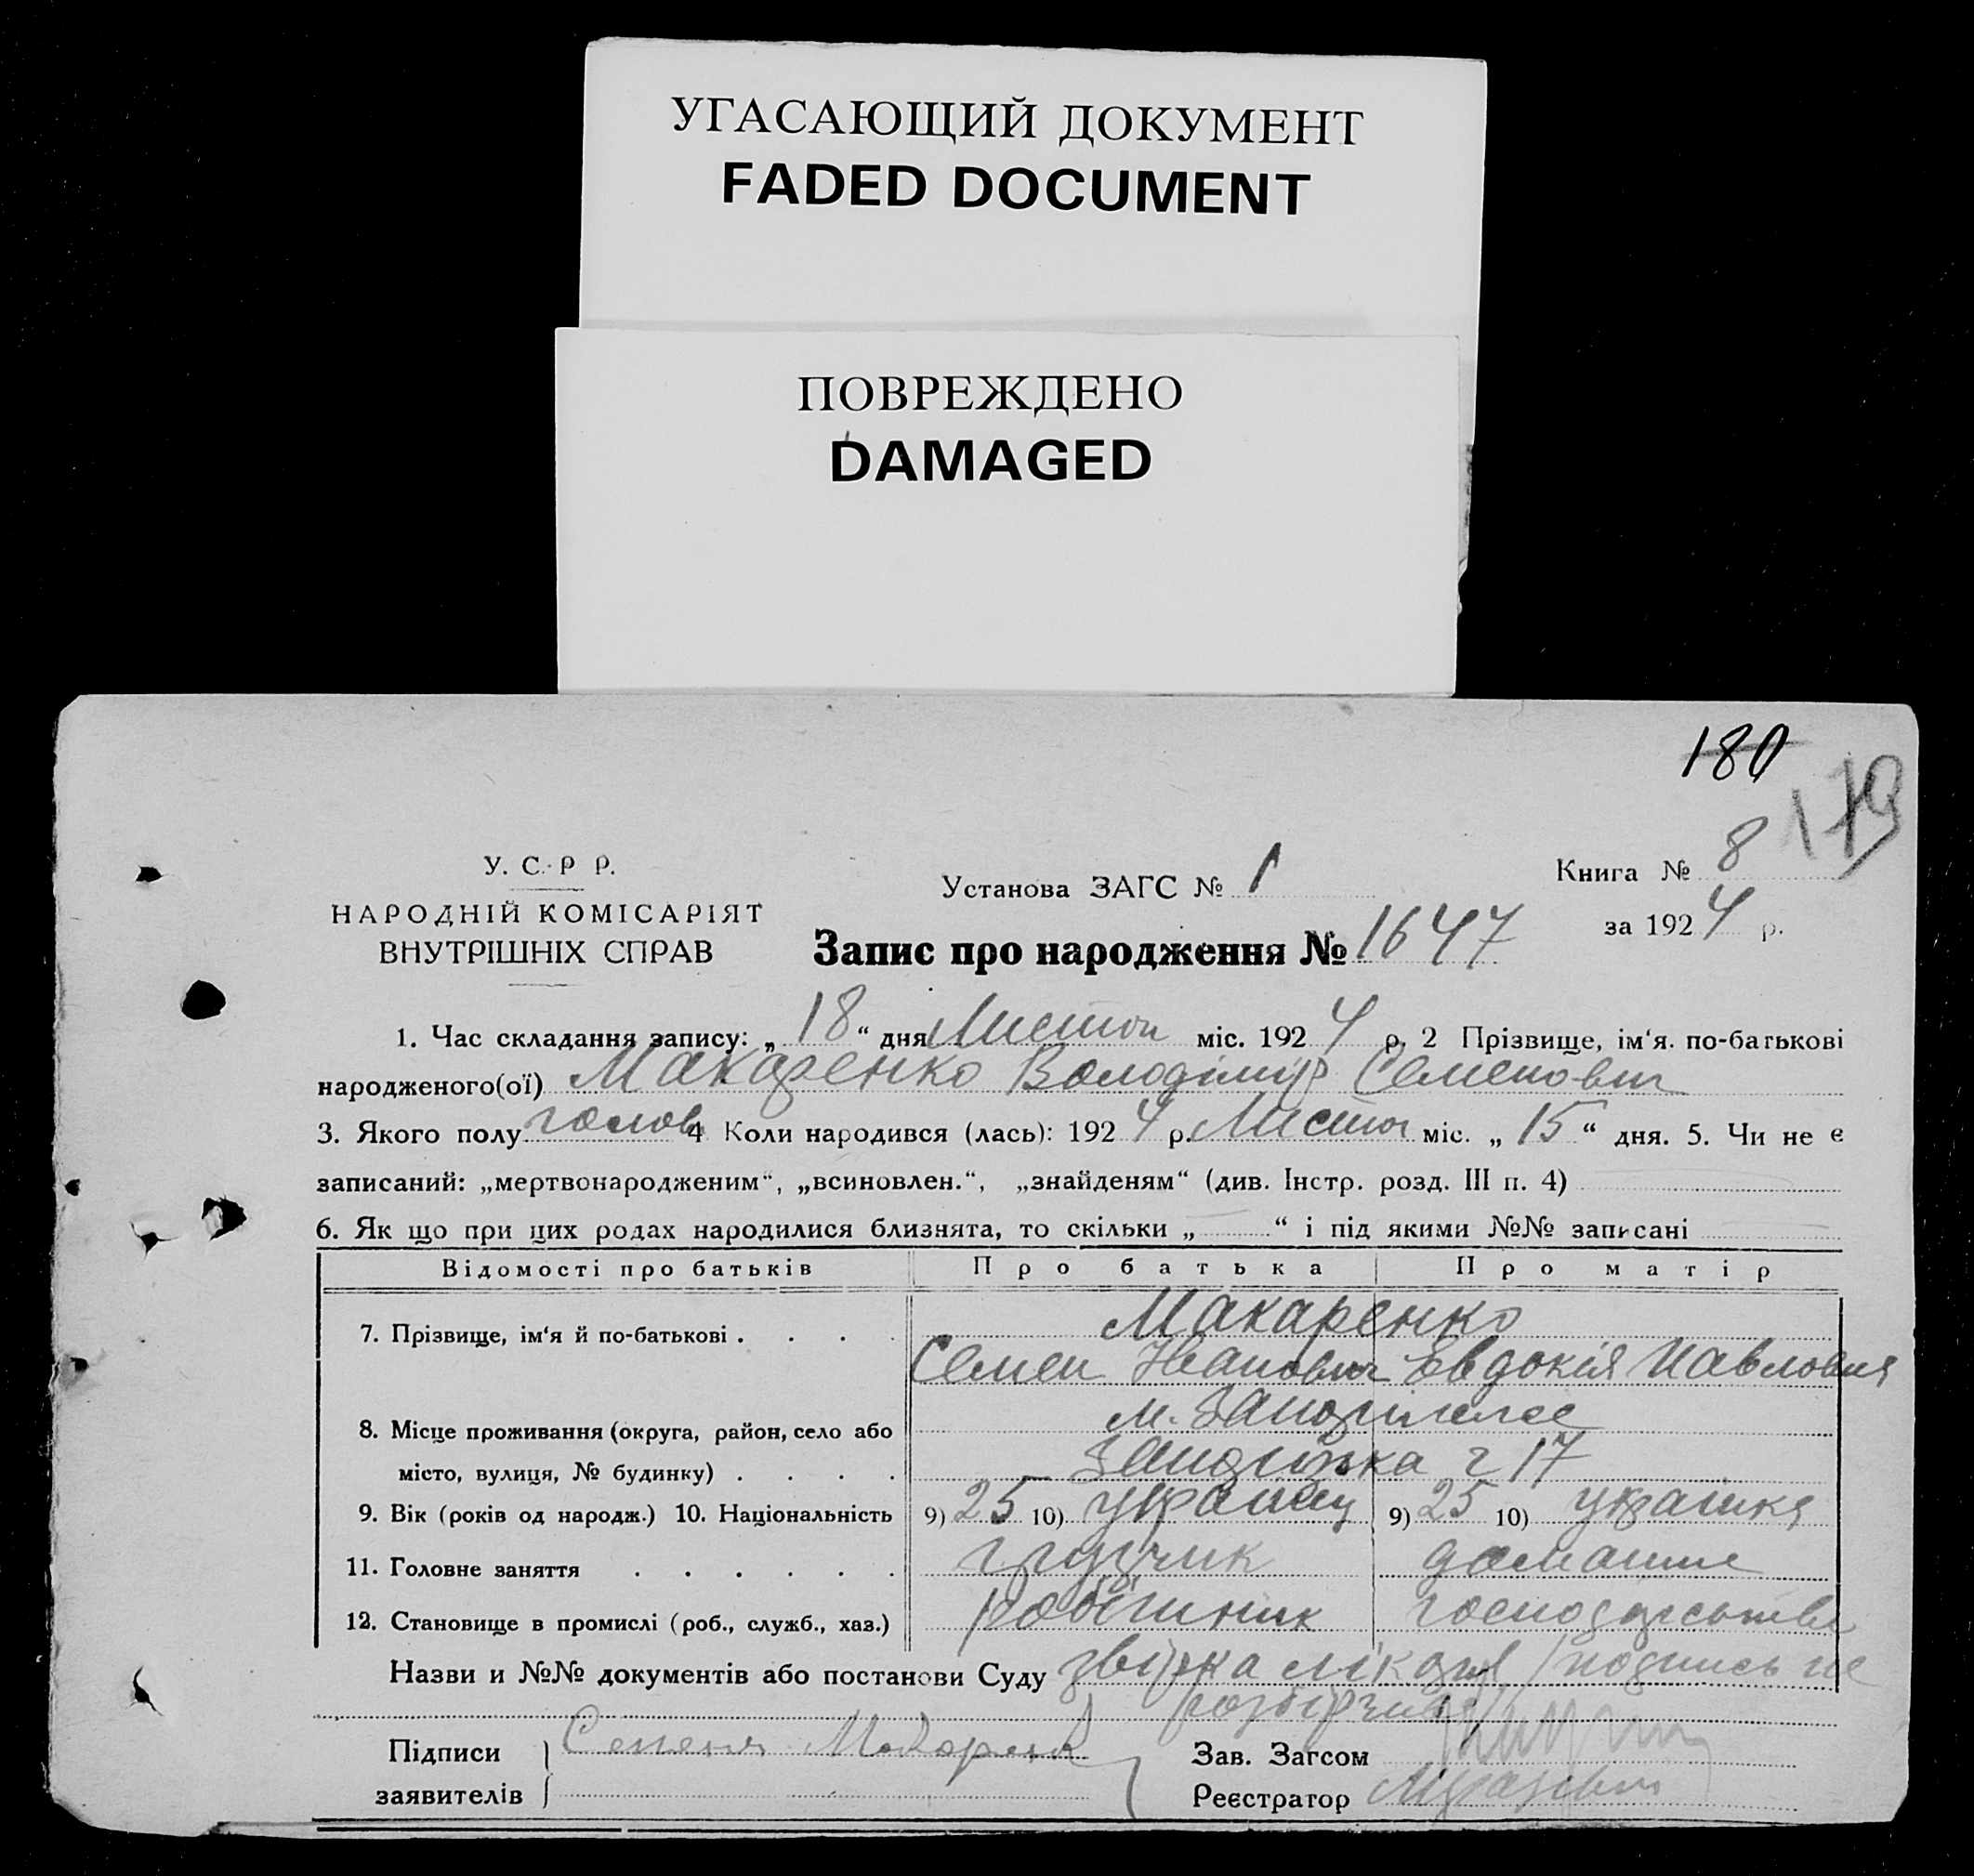 УГАСАЮЩИЙ ДОКУМЕНТ
FADED DOCUMENT
ПОВРЕЖДЕНО
DAMAGED
180
179
У. С. Р Р.
НАРОДНІЙ КОМІСАРІЯТ
ВНУТРІШНІХ СПРАВ
Установа ЗАГС № 1
Книга № 8
за 1924 р.
Запис про народження № 1647
1. Час складання запису: „18“ дня Листоп міс. 1924 р. 2 Прізвище, ім'я. по-батькові
народженого(ої) Макаренко Володімір Семенович
3. Якого полу чолов 4 Коли народився (лась): 1924 р. Листоп міс. „15“ дня. 5. Чи не є
записаний: „мертвонародженим“, „всиновлен.“, „знайденям“ (див. Інстр. розд. III п. 4)
6. Як що при цих родах народилися близнята, то скільки „ “ і під якими №№ записані
Відомості про батьків Про батька Про матір
7. Прізвище, ім'я й по-батькові . . . . Макаренко
Семен Іванович Евдокія Павловна
8. Місце проживання (округа, район, село або м.
місто, вулиця, № будинку) . . . . 17
9. Вік (років од народж.) 10. Національність 9) 25 10) українец 9) 25 10) українка
11. Головне заняття . . . . . . грузчик домашне
12. Становище в промислі (роб., служб., хаз.) робітник господарство
Назви и №№ документів або постанови Суду лікаря /подпись не
розбірчива/
Підписи Семен Макаренко Зав. Загсом
заявителів Реєстратор